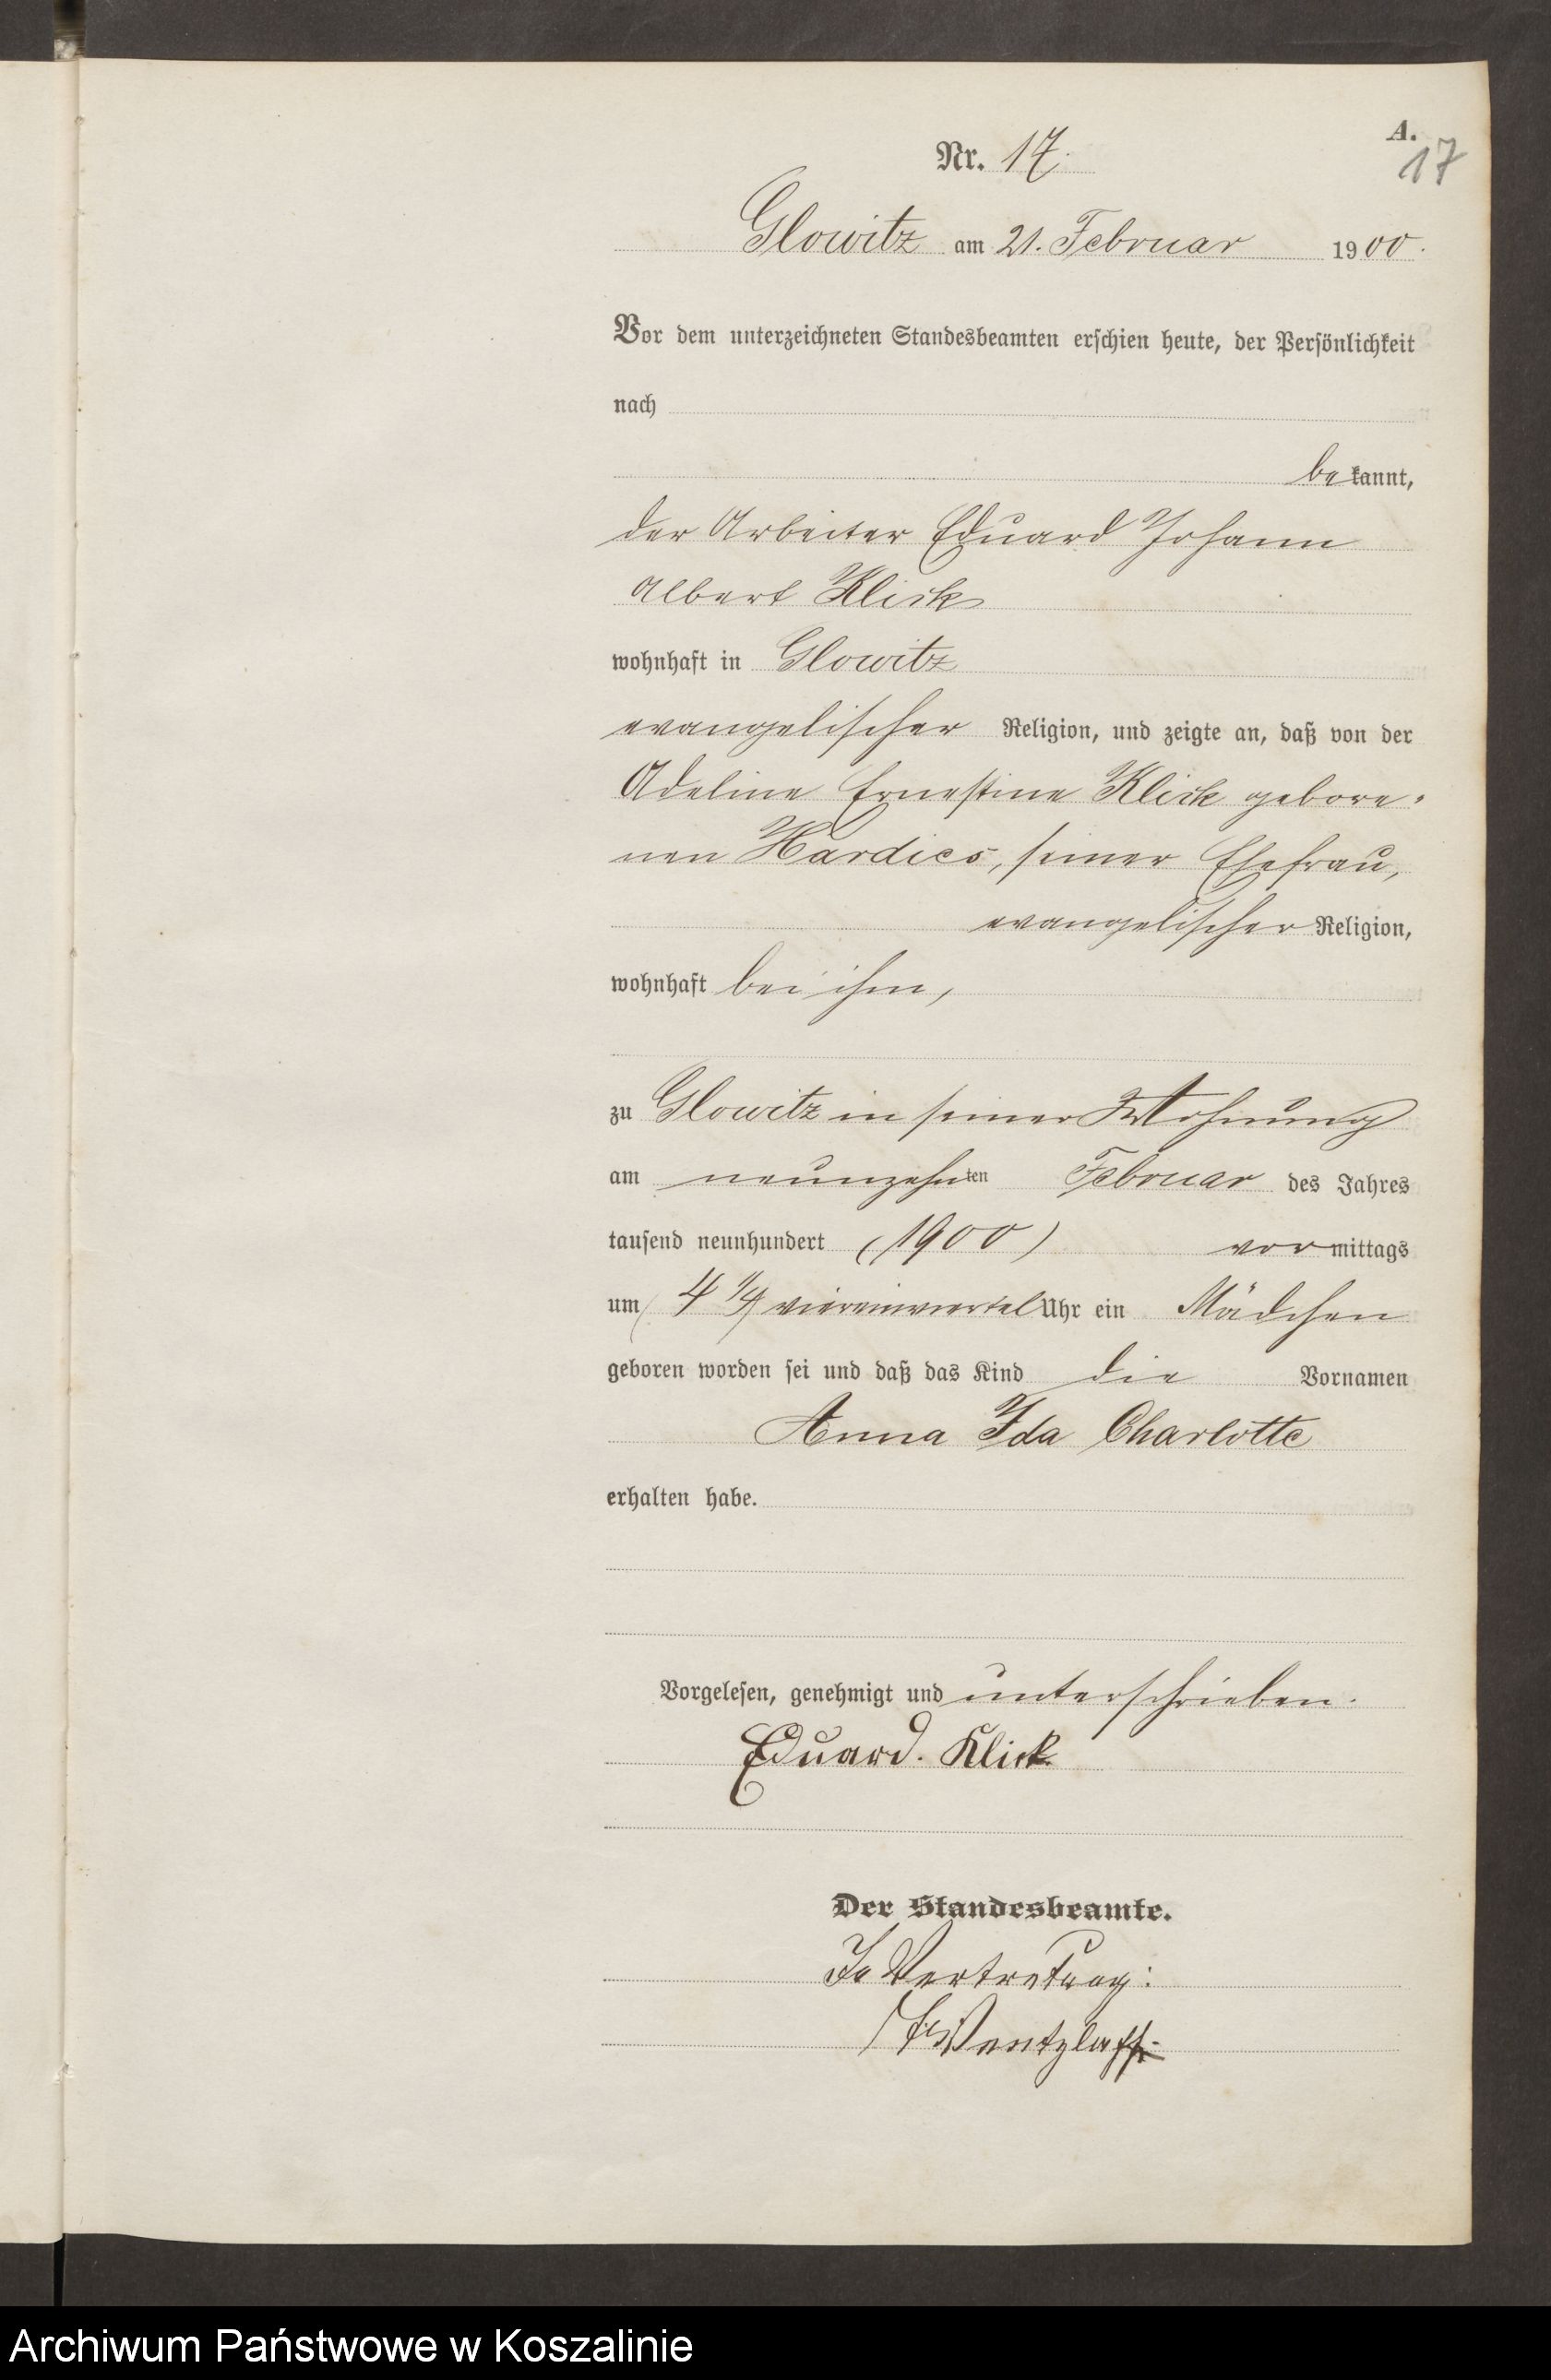 A.
17
Nr. 17.
Glowitz am 21. Februar 1900.
Vor dem unterzeichneten Standesbeamten erschien heute, der Persönlichkeit
nach
bekannt,
der Arbeiter Eduard Johann
Albert Klick
wohnhaft in Glowitz
evangelischer Religion, und zeigte an, daß von der
Adeline Ernestine Klick gebore-
nen Hardies, seiner Ehefrau,
evangelischer Religion,
wohnhaft bei ihm,
zu Glowitz in seiner Wohnung
am neunzehnten Februar des Jahres
tausend neunhundert (1900) vormittags
um (4 1/4) viereinviertel Uhr ein Mädchen
geboren worden sei und daß das Kind die Vornamen
Anna Ida Charlotte
erhalten habe.
Vorgelesen, genehmigt und unterschrieben.
Eduard. Klick
Der Standesbeamte.
In Vertretung:
Wentzlaff.
Archiwum Państwowe w Koszalinie